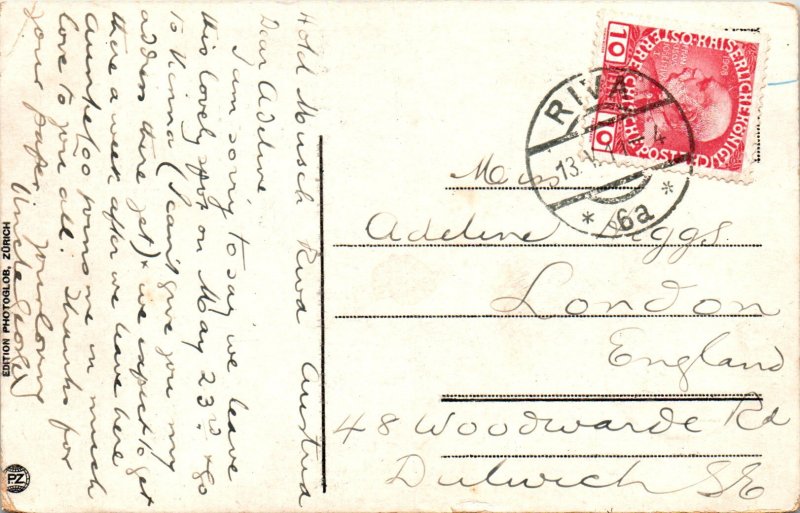 Hotel Musch Riva Austria
Dear Adeline
I am sorry to say we leave
this lovely spot on May 23rd & go
to Vienna (I can't give you my
address there yet) & we expect to get
there a week after we leave here
Auntie too joins me in much
love to you all. Thanks for
your paper
Your loving
Uncle George
EDITION PHOTOGLOB, ZÜRICH
PZ
Miss
Adeline Figgs
London
England
48 Woodwarde Rd
Dulwich SE
RIVA
13.
* 6a *
10
10
1908
KAISERLICHEKÖNIGL
ÖSTERREICHISCHE POST